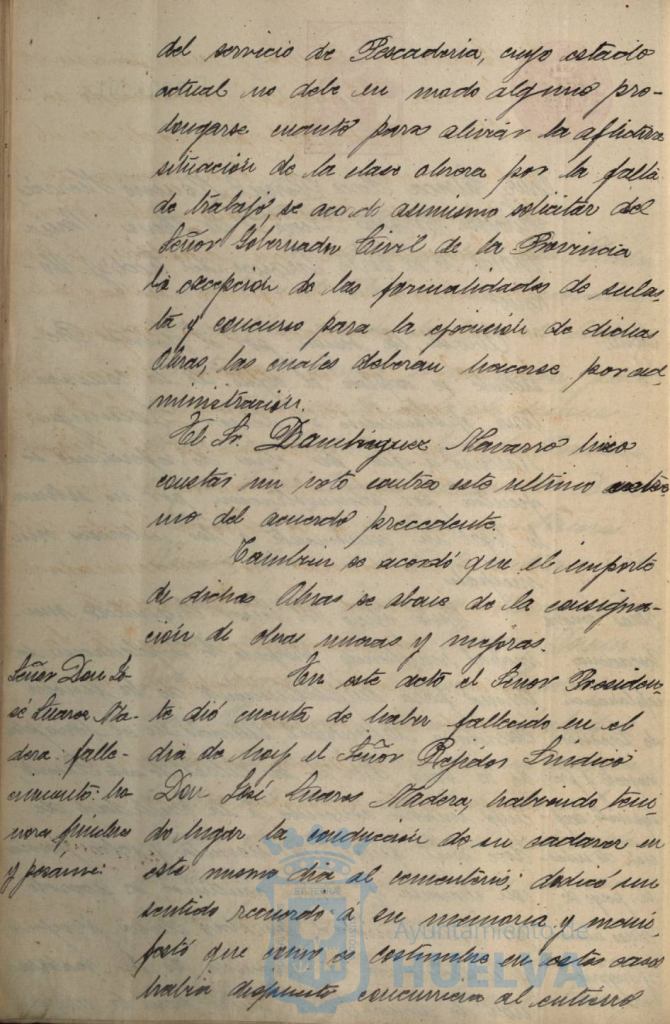 del servicio de Pescaderia, cuyo estado
actual no debe en modo alguno pro-
longarse cuanto para aliviar la aflictiva
situación de la clase obrera por la falta
de trabajo, se acordó asimismo solicitar del
Señor Gobernador Civil de la Provincia
la excepción de las formalidades de subas-
ta y concurso para la ejecución de dichas
Obras, las cuales deberan hacerse por ad-
ministración.
El Sr. Dominguez Navarro hizo
constar un voto contra este ultimo extre-
mo del acuerdo precedente.
Tambien se acordó que el importe
de dichas Obras se abone de la consigna-
ción de obras nuevas y mejoras.
Señor Don Jo-
sé Suarez Ma-
dera: falle-
cimiento: ho-
nores funebres
y pésame:
En este acto el Señor Presiden-
te dió cuenta de haber fallecido en el
dia de hoy el Señor Regidor Sindico
Don José Suarez Madera, habiendo teni-
do lugar la conducción de su cadaver en
este mismo dia al cementerio; dedicó un
sentido recuerdo á su memoria y mani-
festó que como es costumbre en estos casos
habia dispuesto concurriera al entierro
Ayuntamiento de
HUELVA